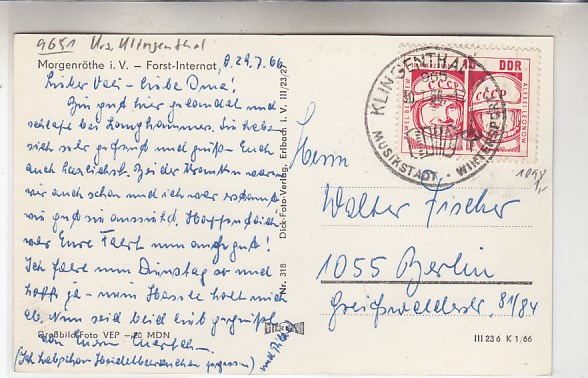 9651 Urs. Klingenthal
Morgenröthe i. V. – Forst-Internat,
d. 29.7.66
Lieber Vati – liebe Oma!
Bin gut hier gelandet und
schlafe bei Langhammer. Sie haben
sich sehr gefreut und grüßen Euch
auch herzlichst. Bei der Kranken waren
wir auch schon und ich war erstaunt
wie gut sie aussieht. Hoffentlich
war Eure Fahrt nun auch gut!
Ich fahre nun Dienstag ab und
hoffe ja – mein
ab. Nun seid beide lieb gegrüßt
von Eurem
(Ich hab schon Heidelbeeren gegessen)
Großbild-Foto VEP –20 MDN
Nr. 318 Dick-Foto-Verlag, Erlbach i. V. III/23/27
KLINGENTHAL
965
MUSIKSTADT · WINTERSPORT
DDR
CCCP
CCCP
PAWEL BELJAJEW
ALEXEI LEONOW
1098
1,-
Herrn
Walter Fischer
1055 Berlin
Greifswalderstr. 81/84
III 23 6 K 1/66